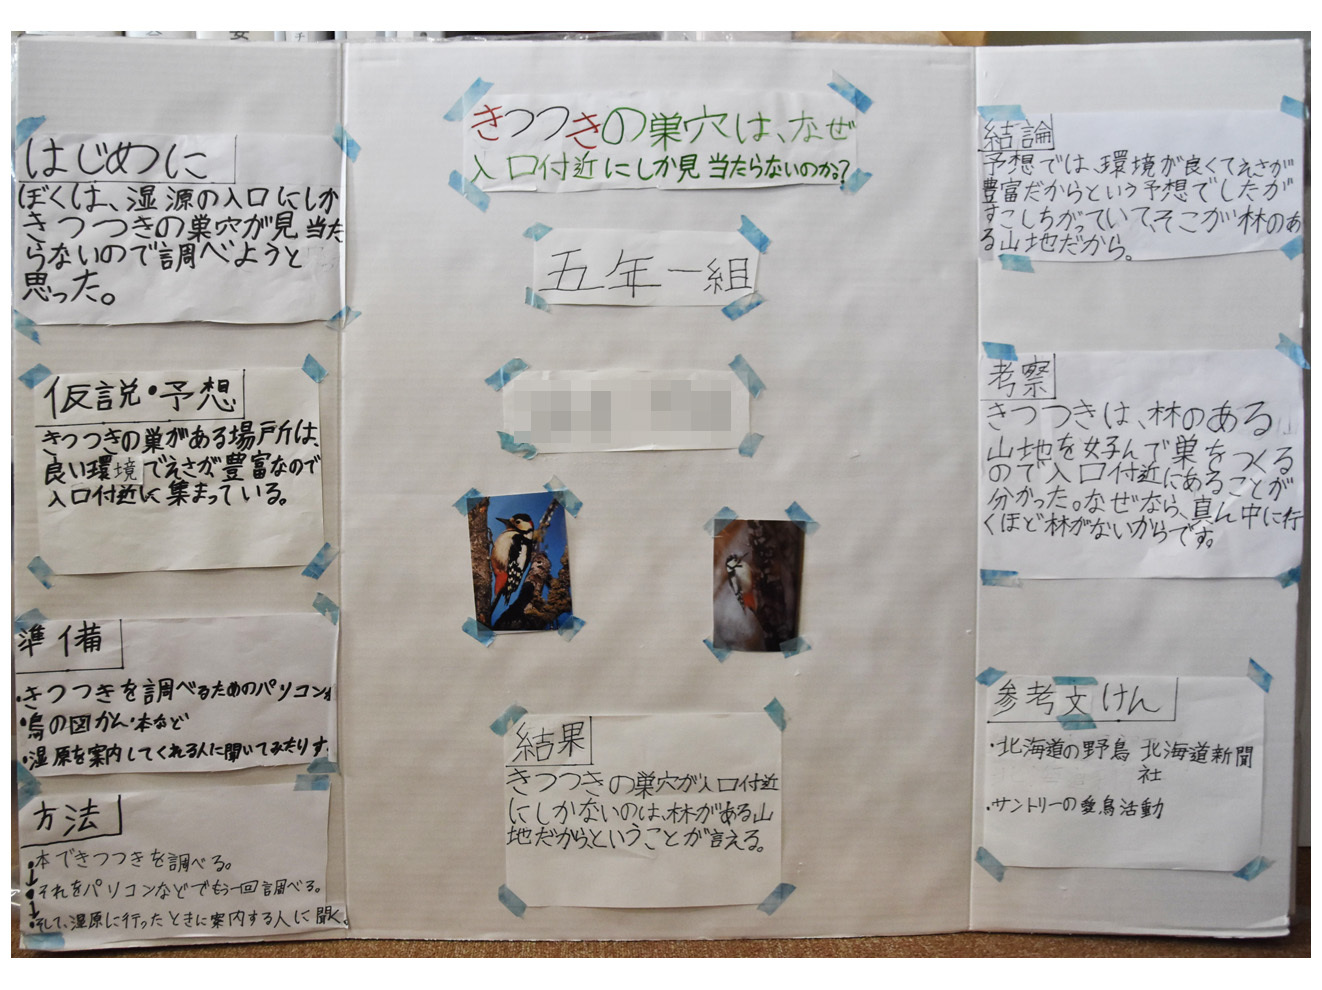 きつつきの巣穴は、なぜ
入口付近にしか見当たらないのか？
五年一組
はじめに
ぼくは、湿源の入口にしか
きつつきの巣穴が見当た
らないので調べようと
思った。
仮説・予想
きつつきの巣がある場所は、
良い環境でえさが豊富なので
入口付近に集まっている。
準備
・きつつきを調べるためのパソコン
・鳥の図かん・本など
・湿原を案内してくれる人に聞いてみたりす
方法
・本できつつきを調べる。
↓
・それをパソコンなどでもう一回調べる。
↓
・そして、湿原に行ったときに案内する人に聞く。
結果
きつつきの巣穴が入口付近
にしかないのは、林がある山
地だから、ということが言える。
結論
予想では、環境が良くてえさが
豊富だからという予想でしたが
すこしちがっていて、そこが林のあ
る山地だから。
考察
きつつきは、林のある
山地を好んで巣をつくる
ので入口付近にあることが
分かった。なぜなら、真ん中に行
くほど林がないからです。
参考文けん
・北海道の野鳥 北海道新聞
社
・サントリーの愛鳥活動